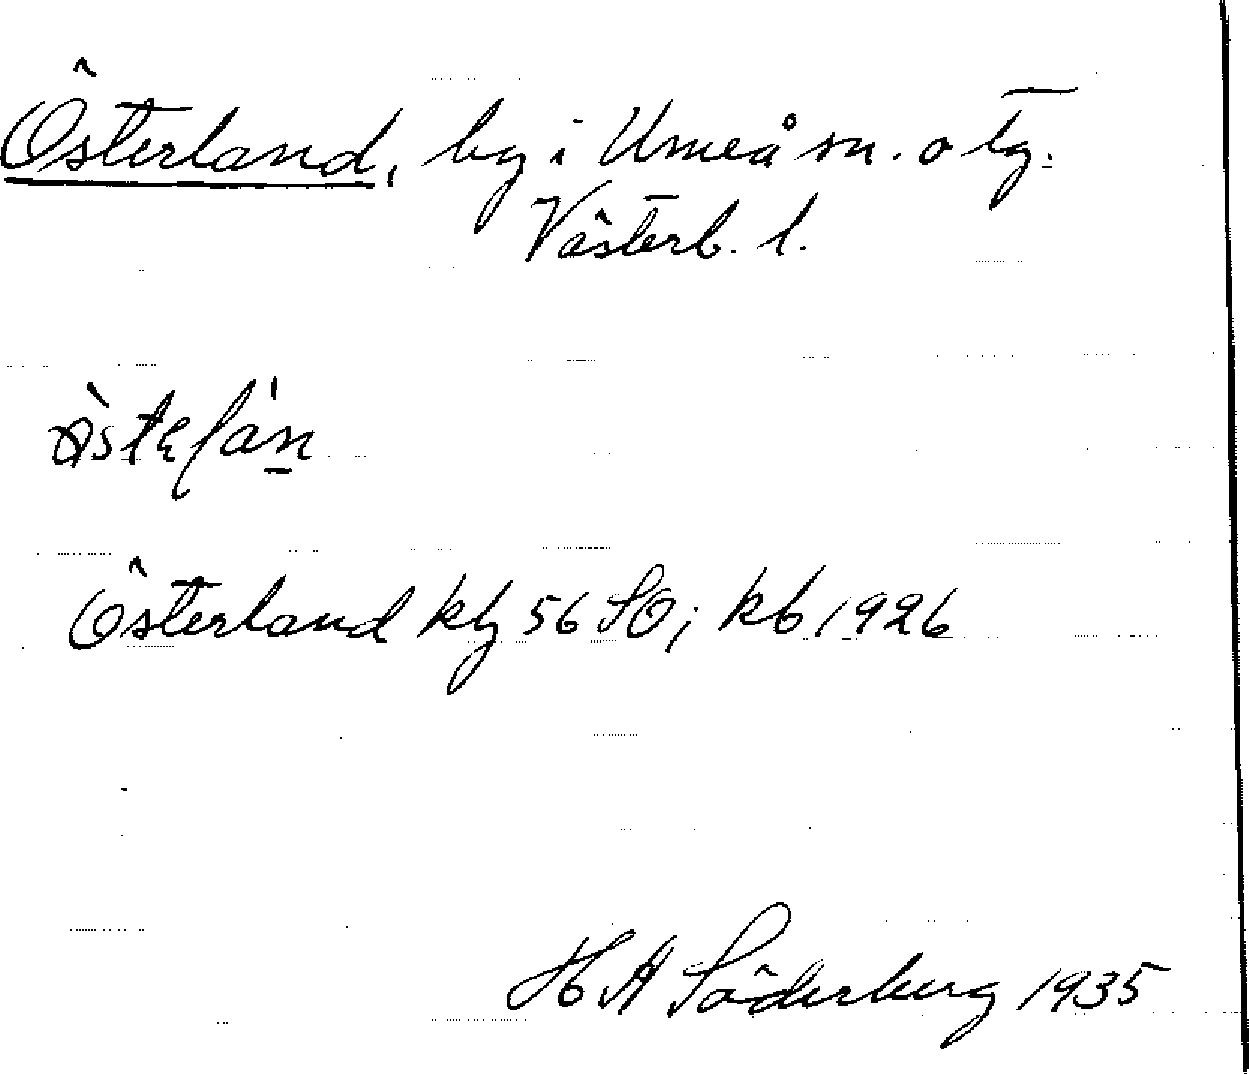 Österland, by i Umeå sn. o tg.
Västerb. l.
Österland kbg 56 SO; kb 1926
H A Söderberg 1935